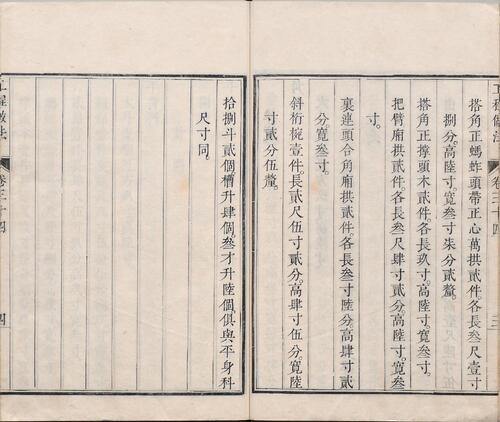 工程做法
卷三十四
三
搭角正螞蚱頭帶正心萬拱貳件各長叁尺壹寸
捌分。高陸寸。寬叁寸柒分貳釐。
搭角正撑頭木貳件。各長玖寸。高陸寸。寬叁寸。
把臂廂拱貳件。各長叁尺肆寸貳分。高陸寸。寬叁
寸。
裏連頭合角廂拱貳件。各長叁寸陸分。高肆寸貳
分。寬叁寸。
斜桁椀壹件。長貳尺伍寸貳分。高肆寸伍分。寬陸
寸貳分伍釐。
拾捌斗貳個。槽升肆個。叁才升陸個。俱與平身科
尺寸同。
工程做法
卷三十四
四